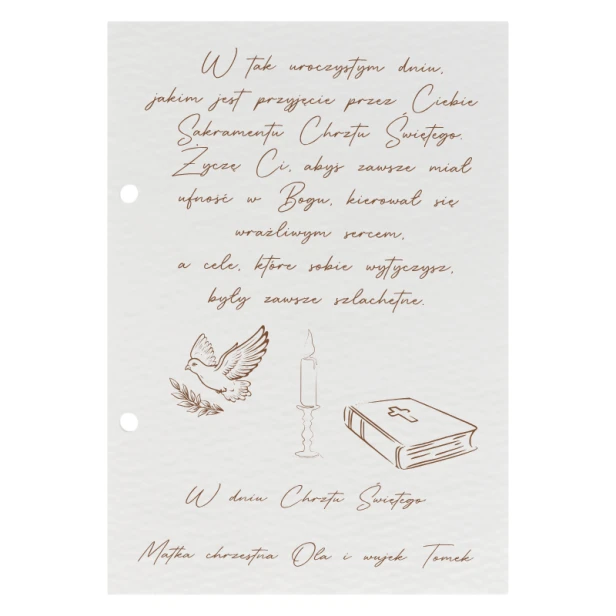 W tak uroczystym dniu,
jakim jest przyjęcie przez Ciebie
Sakramentu Chrztu Świętego.
Życzę Ci, abyś zawsze miał
ufność w Bogu, kierował się
wrażliwym sercem,
a cele, które sobie wytyczysz,
były zawsze szlachetne.
W dniu Chrztu Świętego
Matka chrzestna Ola i wujek Tomek